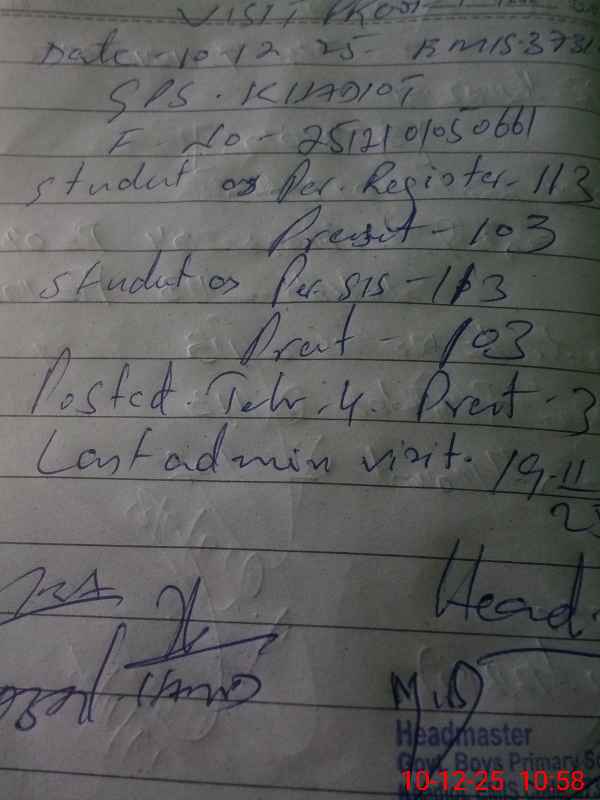 VISIT PROO
Date - 10-12-25 EMIS-3731
GPS. KHADIOT
F. No - 2512101050661
Student as Per. Register - 113
Preset - 103
Student as Per SIS - 113
Preat - 103
Posted. Tehr. 4. Preat - 3
Last admin visit. 19-11
25
Head
HAMID
M.D
Headmaster
Govt. Boys Primary Sc
10-12-25 10:58